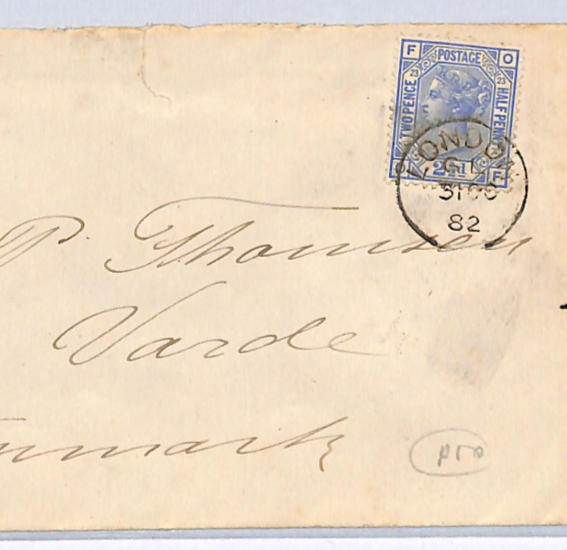 F POSTAGE O
TWO PENCE HALF PENNY
O 2½d F
LONDON
31 OC
82
P. Thomsen
Varde
enmark
PTO